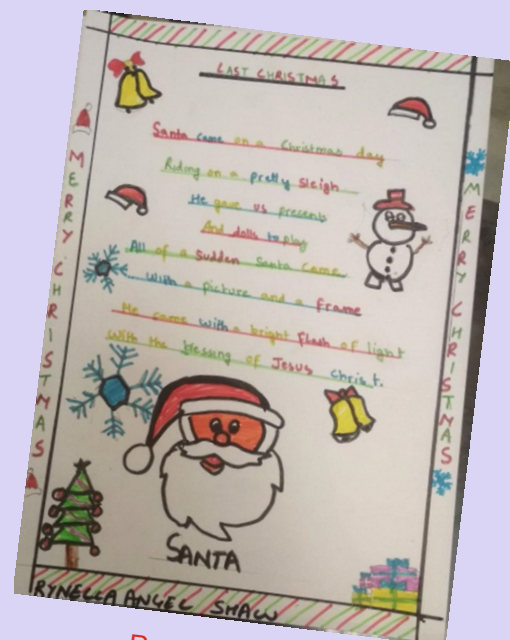 LAST CHRISTMAS
Santa came on a Christmas day
Riding on a pretty sleigh
He gave us presents
And dolls to play
All of a sudden Santa came
With a picture and a frame
He came with a bright flash of light
With the blessing of Jesus Christ.
MERRY CHRISTMAS
MERRY CHRISTMAS
SANTA
RYNELLA ANGEL SHAW